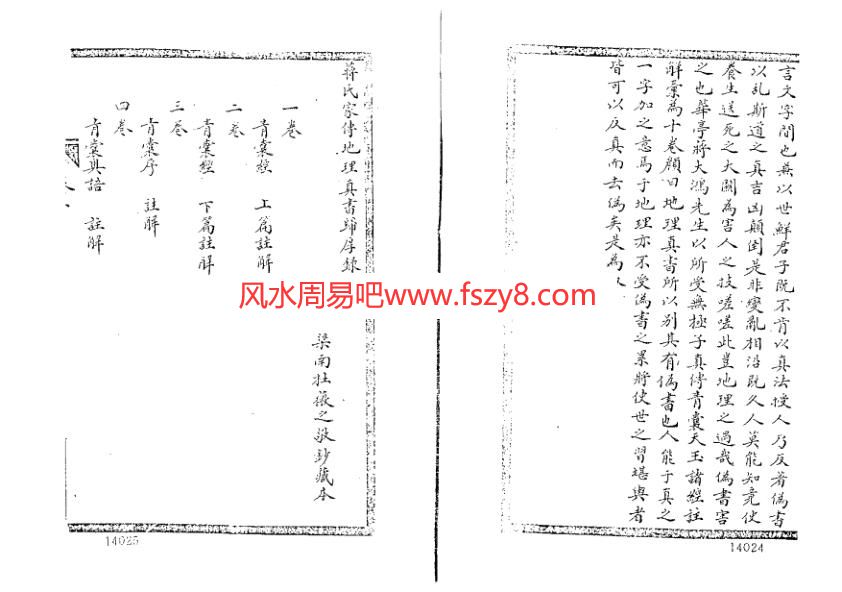 言文字間也兼以世鮮君子既不肯以真法授人乃反著偽書
以乱斯道之真吉凶顛倒是非變亂相沿既久人莫能知竟使
養生送死之大關為害人之技嗟嗟此豈地理之過哉偽書害
之也華亭蔣大鴻先生以所受無極子真傳青囊天玉諸經註
解彙為十卷顏曰地理真書所以别其有偽書也人能于真之
一字加之意焉于地理亦不受偽書之累將使世之習堪輿者
皆可以反真而去偽矣是為
14024
蔣氏家傳地理真書歸厚錄
梁南杜薇之敬鈔藏本
一卷
青囊經 上篇註解
二卷
青囊經 下篇註解
三卷
青囊序 註解
四卷
青囊奥語 註解
14025
风水周易吧www.fszy8.com